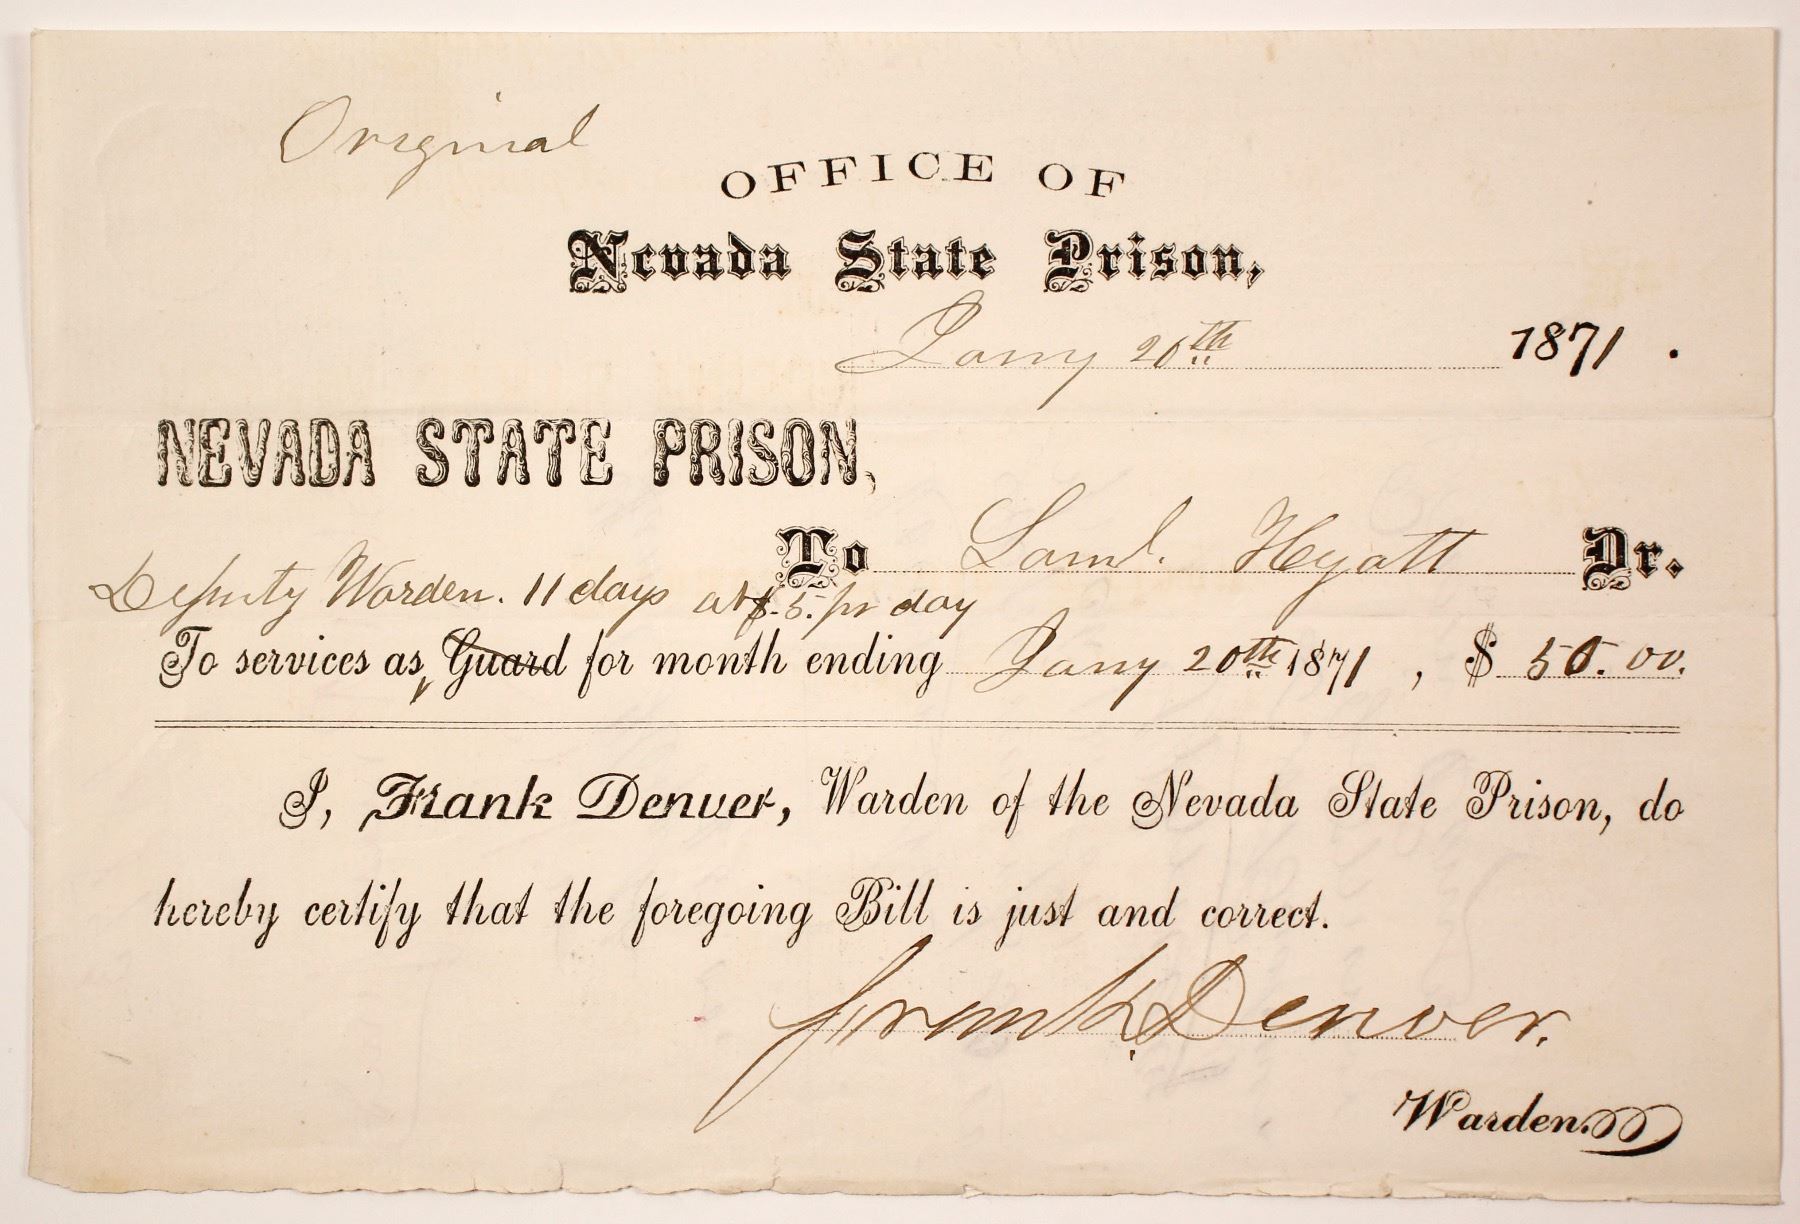 Original
OFFICE OF
Nevada State Prison,
Jany 20th 1871.
NEVADA STATE PRISON,
To Saml. Hyatt Dr.
Deputy Warden. 11 days at $5. pr day
To services as Guard for month ending Jany 20th 1871, $ 55.00.
I, Frank Denver, Warden of the Nevada State Prison, do
hereby certify that the foregoing Bill is just and correct.
Frank Denver.
Warden.